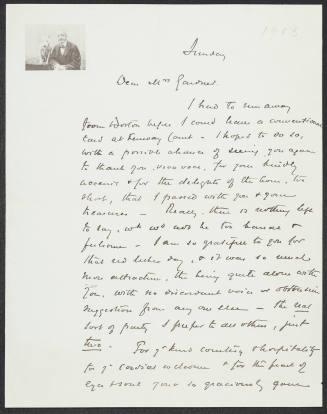 1903
Sunday
Dear Mrs Gardner
I had to run away
from Boston before I could leave a conventional
card at Fenway Court - I hoped to do so,
with a possible chance of seeing you again
to thank you, viva voce, for your kindly
& for the delights of the hour, too
short, that I passed with you & your
treasures - Really, there is nothing left
to say, wh wd not be too banal &
fulsome - I am so grateful to you for
that red letter day, & it was so much
more attractive, the being quite alone with
you, with no discordant voice or
suggestion from any one else - the real
sort of party I prefer to all others, just
two. For yr kind courtesy & hospitality
to yr cordial welcome & for the feast of
eyes & soul you so graciously gave